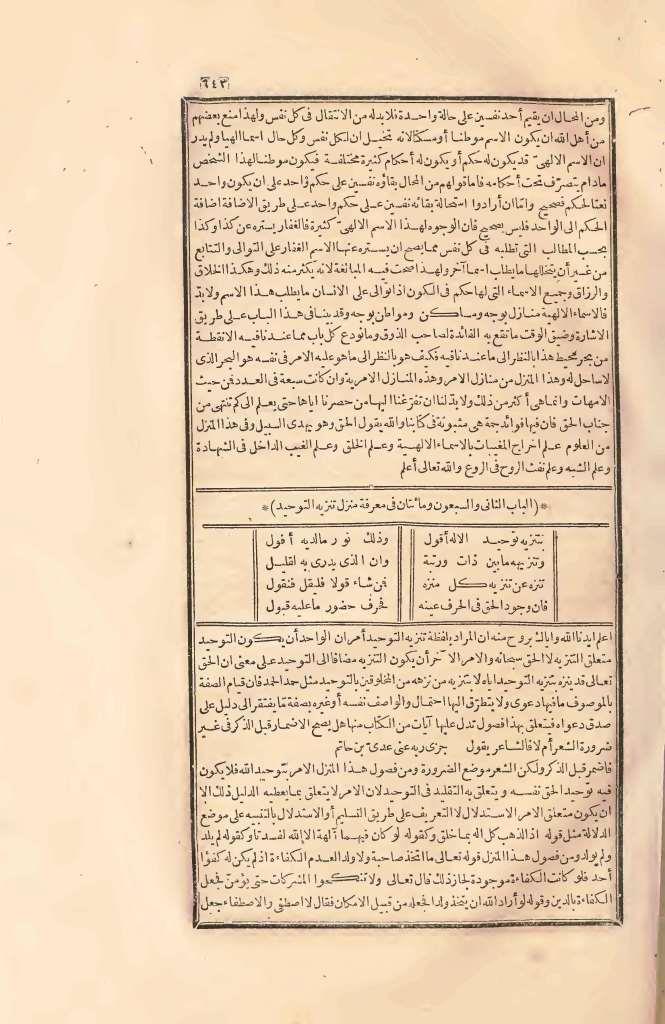 ٦٤٣
ومن المحال ان يقيم أحد نفسين على حالة واحدة فلا بد له من الانتقال فى كل نفس ولهذا منع بعضهم
من أهل الله ان يكون الاسم موطنا أو مسكنا لانه تخيل ان لكل نفس وكل حال اسما الهيا ولم يدر
ان الاسم الالهىّ قد يكون له حكم أو يكون له أحكام كثيرة مختلفة فيكون موطنا لهذا الشخص
مادام يتصرّف تحت أحكامه فاما قولهم من المحال بقاؤه نفسين على حكم واحد على ان يكون واحد
نعتا لحكم فصحيح واما ان أرادوا استحالة بقائه نفسين على حكم واحد على طريق الاضافة اضافة
الحكم الى الواحد فليس بصحيح فان الوجوه لهذا الاسم الالهىّ كثيرة فالغفار يستره عن كذا وكذا
بحسب المطالب التى تطلبه فى كل نفس مما يصح ان يستره عنها الاسم الغفار على التوالى والتتابع
من غير أن يتخللها ما يطلب اسما آخر ولهذا صحت فيه المبالغة لانه يكثر منه ذلك وهكذا الخلاق
والرزاق وجميع الاسماء التى لها حكم فى الكون اذا توالى على الانسان ما يطلب هذا الاسم ولا بد
فالاسماء الالهية منازل بوجه ومساكن ومواطن بوجه وقد بينا فى هذا الباب على طريق
الاشارة وضيق الوقت ما تقع به الفائدة لصاحب الذوق وما نودع كل باب مما عندنا فيه الا نقطة
من بحر محيط هذا بالنظر الى ما عندنا فيه فكيف هو بالنظر الى ما هو عليه الامر فى نفسه هو البحر الذى
لا ساحل له وهذا المنزل من منازل الامر وهذه المنازل الامرية وان كانت سبعة فى العدد فمن حيث
الامهات وانما هى أكثر من ذلك ولا بد لنا ان تفرّغنا اليها من حصرنا اياها حتى يعلم الى كم تنتهى من
جناب الحق فان فيها فوائد جمة هى مثبوتة فى كتابنا والله يقول الحق وهو يهدى السبيل وفى هذا المنزل
من العلوم علم اخراج المغيبات بالاسماء الالهية وعلم الخلق وعلم الغيب الداخل فى الشهادة
وعلم الشبه وعلم نفث الروح فى الروع والله تعالى أعلم
*(الباب الثانى والسبعون ومائتان فى معرفة منزل تنزيه التوحيد)*
بتنزيه توحيد الاله أقول وذلك نور مالديه أفول
وتنزيهه ما بين ذات ورتبة وان الذى يدرى به لقليل
تنزه عن تنزيه كل منزه فمن شاء قولا فليقل فنقول
فان وجود الحق فى الحرف عينه فحرف حضور ما عليه قبول
اعلم ايدنا الله واياك بروح منه ان المراد بلفظة تنزيه التوحيد أمران الواحد أن يكون التوحيد
متعلق التنزيه لا الحق سبحانه والامر الآخر أن يكون التنزيه مضافا الى التوحيد على معنى ان الحق
تعالى قد ينزه بتنزيه التوحيد اياه لا بتنزيه من نزهه من المخلوقين بالتوحيد مثل حمد الحمد فان قيام الصفة
بالموصوف ما فيها دعوى ولا يتطرّق اليها احتمال والواصف نفسه أو غيره بصفة مّا يفتقر الى دليل على
صدق دعواه فيتعلق بهذا فصول تدل عليها آيات من الكتاب منها هل يصح الاضمار قبل الذكر فى غير
ضرورة الشعر أم لا فالشاعر يقول جزى ربه عنى عدى بن حاتم
فاضمر قبل الذكر ولكن الشعر موضع الضرورة ومن فصول هذا المنزل الامر بتوحيد الله فلا يكون
فيه توحيد الحق نفسه ويتعلق به التقليد فى التوحيد لان الامر لا يتعلق بما يعطيه الدليل ذلك الا
ان يكون متعلق الامر الاستدلال لا التعريف على طريق التسليم أو الاستدلال بالتنبيه على موضع
الدلالة مثل قوله اذا لذهب كل اله بما خلق وكقوله لو كان فيهما آلهة الا الله لفسدتا وكقوله لم يلد
ولم يولد ومن فصول هذا المنزل قوله تعالى ما اتخذ صاحبة ولا ولدا لعدم الكفاءة اذ لم يكن له كفؤا
أحد فلو كانت الكفاءة موجودة لجاز ذلك قال تعالى ولا تنكحوا المشركات حتى يؤمنّ فجعل
الكفاءة بالدين وقوله لو أراد الله ان يتخذ ولدا فجعله من قبيل الامكان فقال لاصطفى والاصطفاء جعل